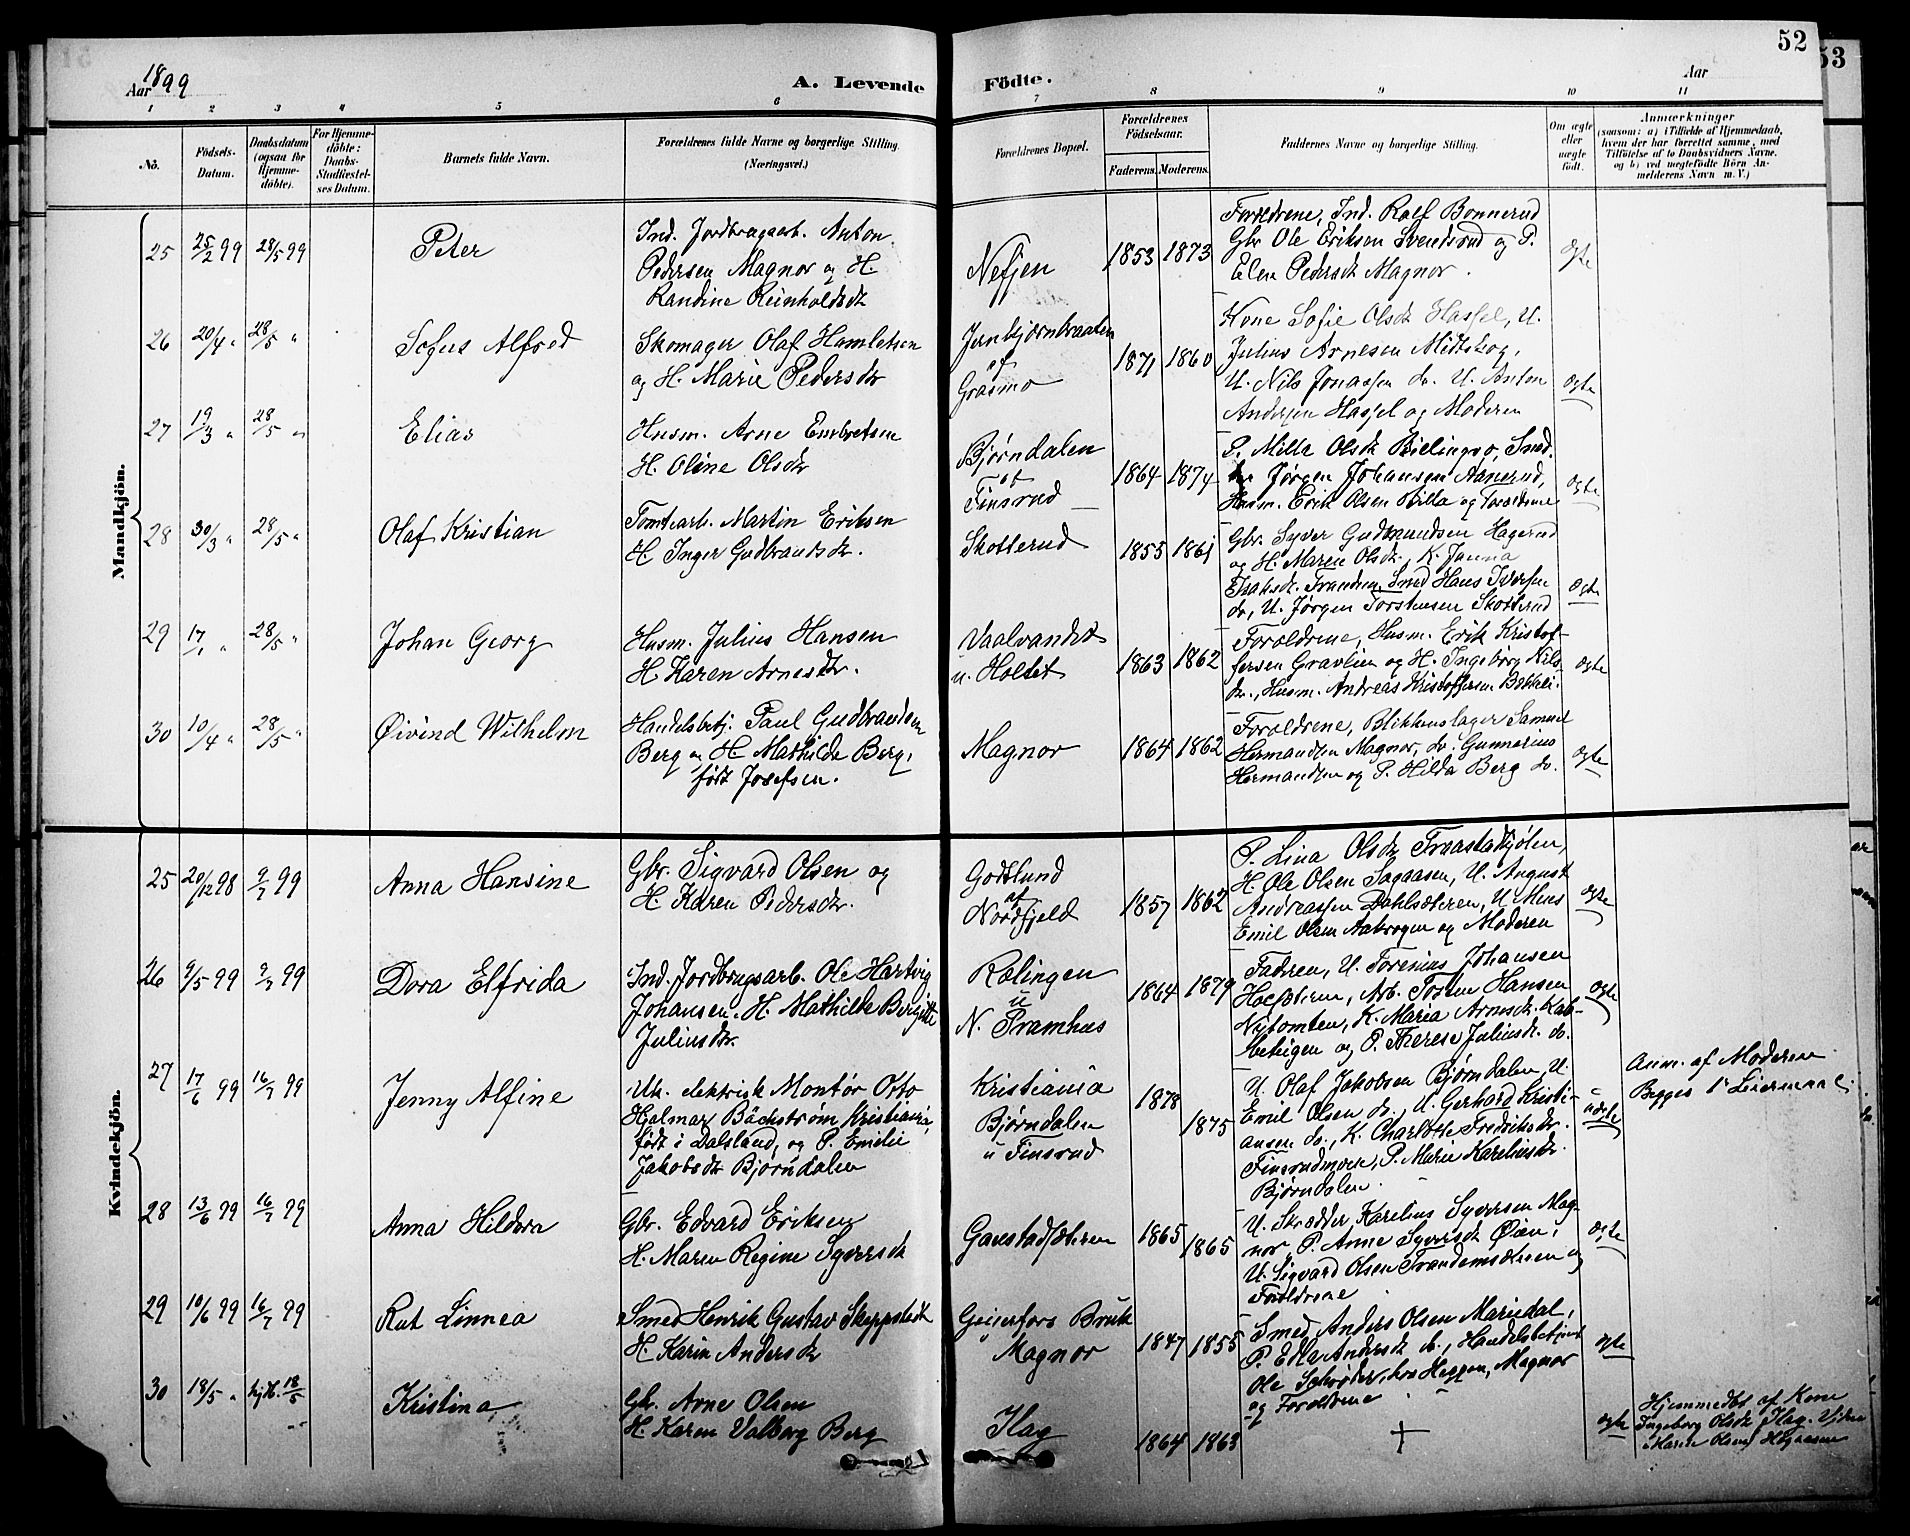 52
53
Aar 1899
A. Levende Födte.
Aar
1 2 3 4 5 6 7 8 9 10 11
No.
Födsels-Datum.
Daabsdatum (ogsaa for Hjemme-döbte).
For Hjemme-döbte: Daabs-Stadfæstel-ses Datum.
Barnets fulde Navn.
Forældrenes fulde Navne og borgerlige Stilling. (Næringsvei.)
Forældrenes Bopæl.
Forældrenes Födselsaar.
Faderens. Moderens.
Faddernes Navne og borgerlige Stilling.
Om ægte eller uægte födt.
Anmærkninger
(saasom: a) i Tilfælde af Hjemmedaab,
hvem der har forrettet samme, med
Tilföielse af to Daabsvidners Navne,
og b) ved uægtefödte Börn An-
melderens Navn m. V.)
Mandkjön.
25 25/2 99 28/5 99 Peter
Ind. Jordbrugsarb. Anton
Pedersen Magnor og H.
Randine Reinholdsdt
Nesjen
1853 1873
Forældrene, Ind. Ralf Bonnerud
Gbr Ole Eriksen Svendsrud og P.
Elen Pedersdt Magnor.
ægte
26 20/4 " 28/5 " Sofus Alfred
Skomager Olaf Hamletsen
og H. Marie Pedersdtr
Jernbjørnbraaten
af
Grasmo
1871 1860
Kone Sofie Olsdt Hassel, U.
Julius Arnesen Midtskog,
U. Nils Jonassen do. U. Anton
Andersen Hassel og Moderen
ægte
27 19/3 " 28/5 " Elias
Husm. Arne Embretsen
H. Oline Olsdtr
Bjørndalen
af
Finsrud
1864 1874
P. Milla Olsdt Billingsø, Smed.
Jørgen Johansen Aanerud,
Husm. Erik Olsen Milla og Forældrene
ægte
28 30/3 " 28/5 " Olaf Kristian
Tomtearb. Martin Eriksen
H. Inger Gudbrandsdr.
Skotterud
1855 1861
Gbr. Syver Gudmundsen Hagerud
og H. Maren Olsdt, K. Janna
Frandem, Smed Hans Iversen
do, U. Jørgen Torstensen Skotterud
ægte
29 17/1 " 28/5 " Johan Georg
Husm. Julius Hansen
H. Karen Arnesdtr.
Vaalvandet
u. Holtet
1863 1862
Forældrene, Husm. Erik Kristof-
fersen Gravlien og H. Ingebørg Nils-
dr., Husm. Andreas Kristoffersen Bækkeli.
ægte
30 10/4 " 28/5 " Øivind Wilhelm
Handelsbetj. Paul Gudbrandsen
Berg og H Mathilde Berg,
født Josefsen.
Magnor
1864 1862
Forældrene, Blikkenslager Samuel
Hermandsen Magnor, do. Gunnerius
Hermandsen og P. Hilda Berg do.
ægte
Kvindekjön.
25 20/12 98 9/7 99 Anna Hansine
Gbr. Sigvard Olsen og
H. Karen Pedersdtr.
Godslund
af
Nordfjeld
1857 1862
P. Lina Olsdt Fraastadkjølen,
H. Ole Olsen Sagaasen, U. August
Andreassen Dahlsæteren, U. Mens
Emil Olsen Aabrogen og Moderen
ægte
26 9/5 99 9/7 99 Dora Elfrida
Ind. Jordbrugsarb. Ole Hartvig
Johansen, H. Mathilde Birgitte
Juliusdtr.
Rolingen
u
N. Pramhus
1864 1879
Faderen, U. Torenius Johansen
Arb. Torsten Hansen
Nytomten, K. Maria Arnesdt. Kab-
behügen og P. Therese Juliusdt. do.
ægte
27 17/6 99 16/7 99 Jenny Alfine
Uk. elektrisk Montør Otto
Hjalmar Bäckström Kristiania,
født i Dalsland, og P. Emilie
Jakobsdt Bjørndalen
Kristiania
Bjørndalen
u Finsrud
1878
1875
U. Olaf Jakobsen Bjørndalen, U.
Emil Olsen do., U. Gerhard Kristi-
ansen do., K. Charlotte Fredriksdtr.
Finsrudmoen, P. Marie Kareliusdtr.
Bjørndalen.
uægte
Anm. af Moderen
Begges 1ste Leiermaal.
28 13/6 99 16/7 99 Anna Hildora
Gbr. Edvard Eriksen
H. Maren Regine Syversdt
Gaustadsæteren
1865 1865
U. Skrædder Karelius Syversen Mag-
nor, P. Anne Syversdt Øien,
U. Sigvard Olsen Frandemsæteren og
Forældrene
ægte
29 10/6 99 16/7 99 Rut Linnea
Smed Henrik Gustav Skeppstedt
H. Karin Andersdt
Geijerfors Bruk
Magnor
1847 1855
Smed Anders Olsen Mariedal,
P. Edla Andersdt do., Handelsbetjent
Ole Schrøder, hos Heggen, Magnor
og Forældrene
ægte
30 18/5 " hjd. 18/5 Kristina
Gbr. Arne Olsen
H. Karen Valborg Berg
Flag
1864 1863
+
ægte
Hjemmedøbt af Kone
Ingeborg Olsdt Flag. Vidner
Maren Olsen